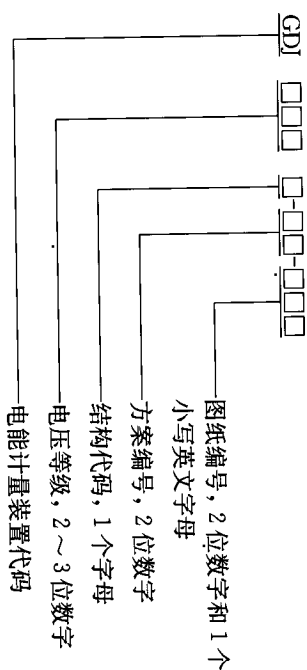 GDJ □□□ □-□□-□□□
图纸编号，2位数字和1个
小写英文字母
方案编号，2位数字
结构代码，1个字母
电压等级，2～3位数字
电能计量装置代码